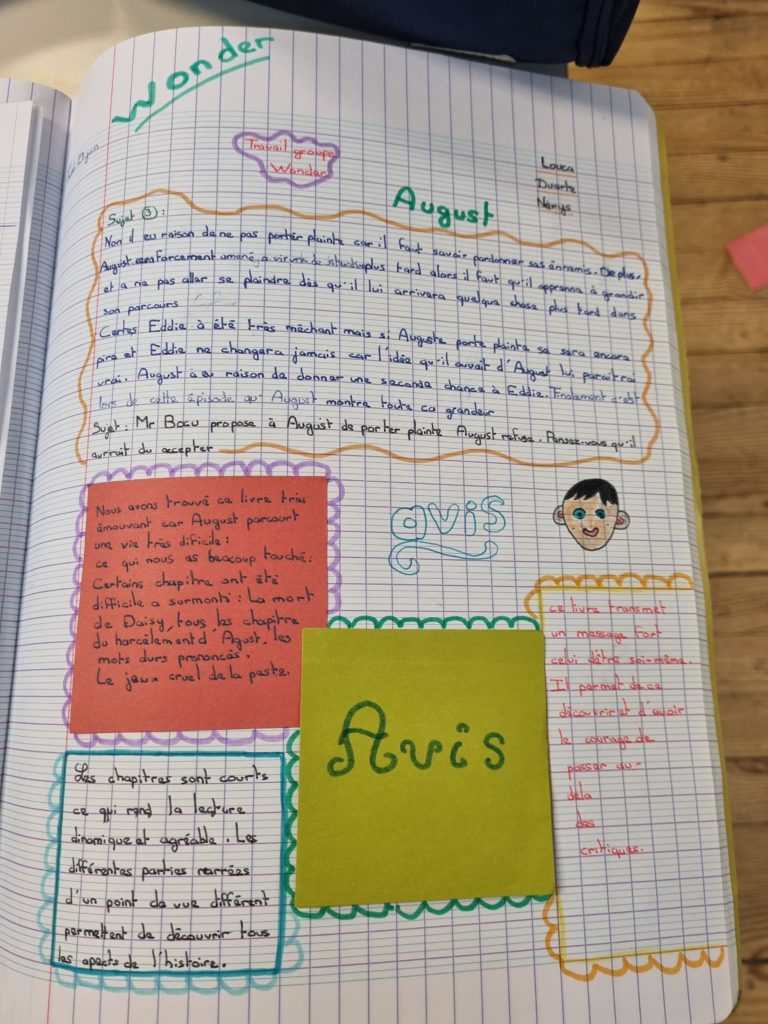 Wonder
Travail groupe
Wonder
Louca
Duarte
Nerys
August
Sujet ③ :
Non d eu raison de ne pas porter plainte car il faut savoir pardonner ses ennemis. De plus,
August sera forcement umené a vivre de situation plus tard alors il faut qu'il apprenne à grandir
et a ne pas aller se plaindre dès qu'il lui arrivera quelque chose plus tard dans
son parcours
Certes Eddie à été très méchant mais si Auguste porte plainte se sera encore
pire et Eddie ne changera jamais car l'idée qu'il auvait d'August lui paraitrai
vrai. August à eu raison de donner une seconde chance à Eddie. Finalement c'est
lors de cette épisode qu' August montre toute ca grandeur
Sujet : Mr Bocu propose à August de porter plainte August refuse. Pensez-vous qu'il
aurrait du accepter
Nous avons trouvé ce livre très
émouvant car August parcourt
une vie très dificile :
ce qui nous as beacoup touché.
Certains chapitre ont été
difficile a surmonté : La mort
de Daisy, tous les chapitre
du harcèlement d'Agust, les
mots durs prononcés.
Le jeux cruel de la peste.
avis
Avis
ce livre transmet
un message fort
celui d'être soi-même.
Il permet de ce
découvrir et d'avoir
le courage de
passer au-
dela
des
critiques.
Les chapitres sont courts
ce qui rend la lecture
dinamique et agréable. Les
différentes parties narrées
d'un point de vue différent
permettent de découvrir tous
les apects de l'histoire.